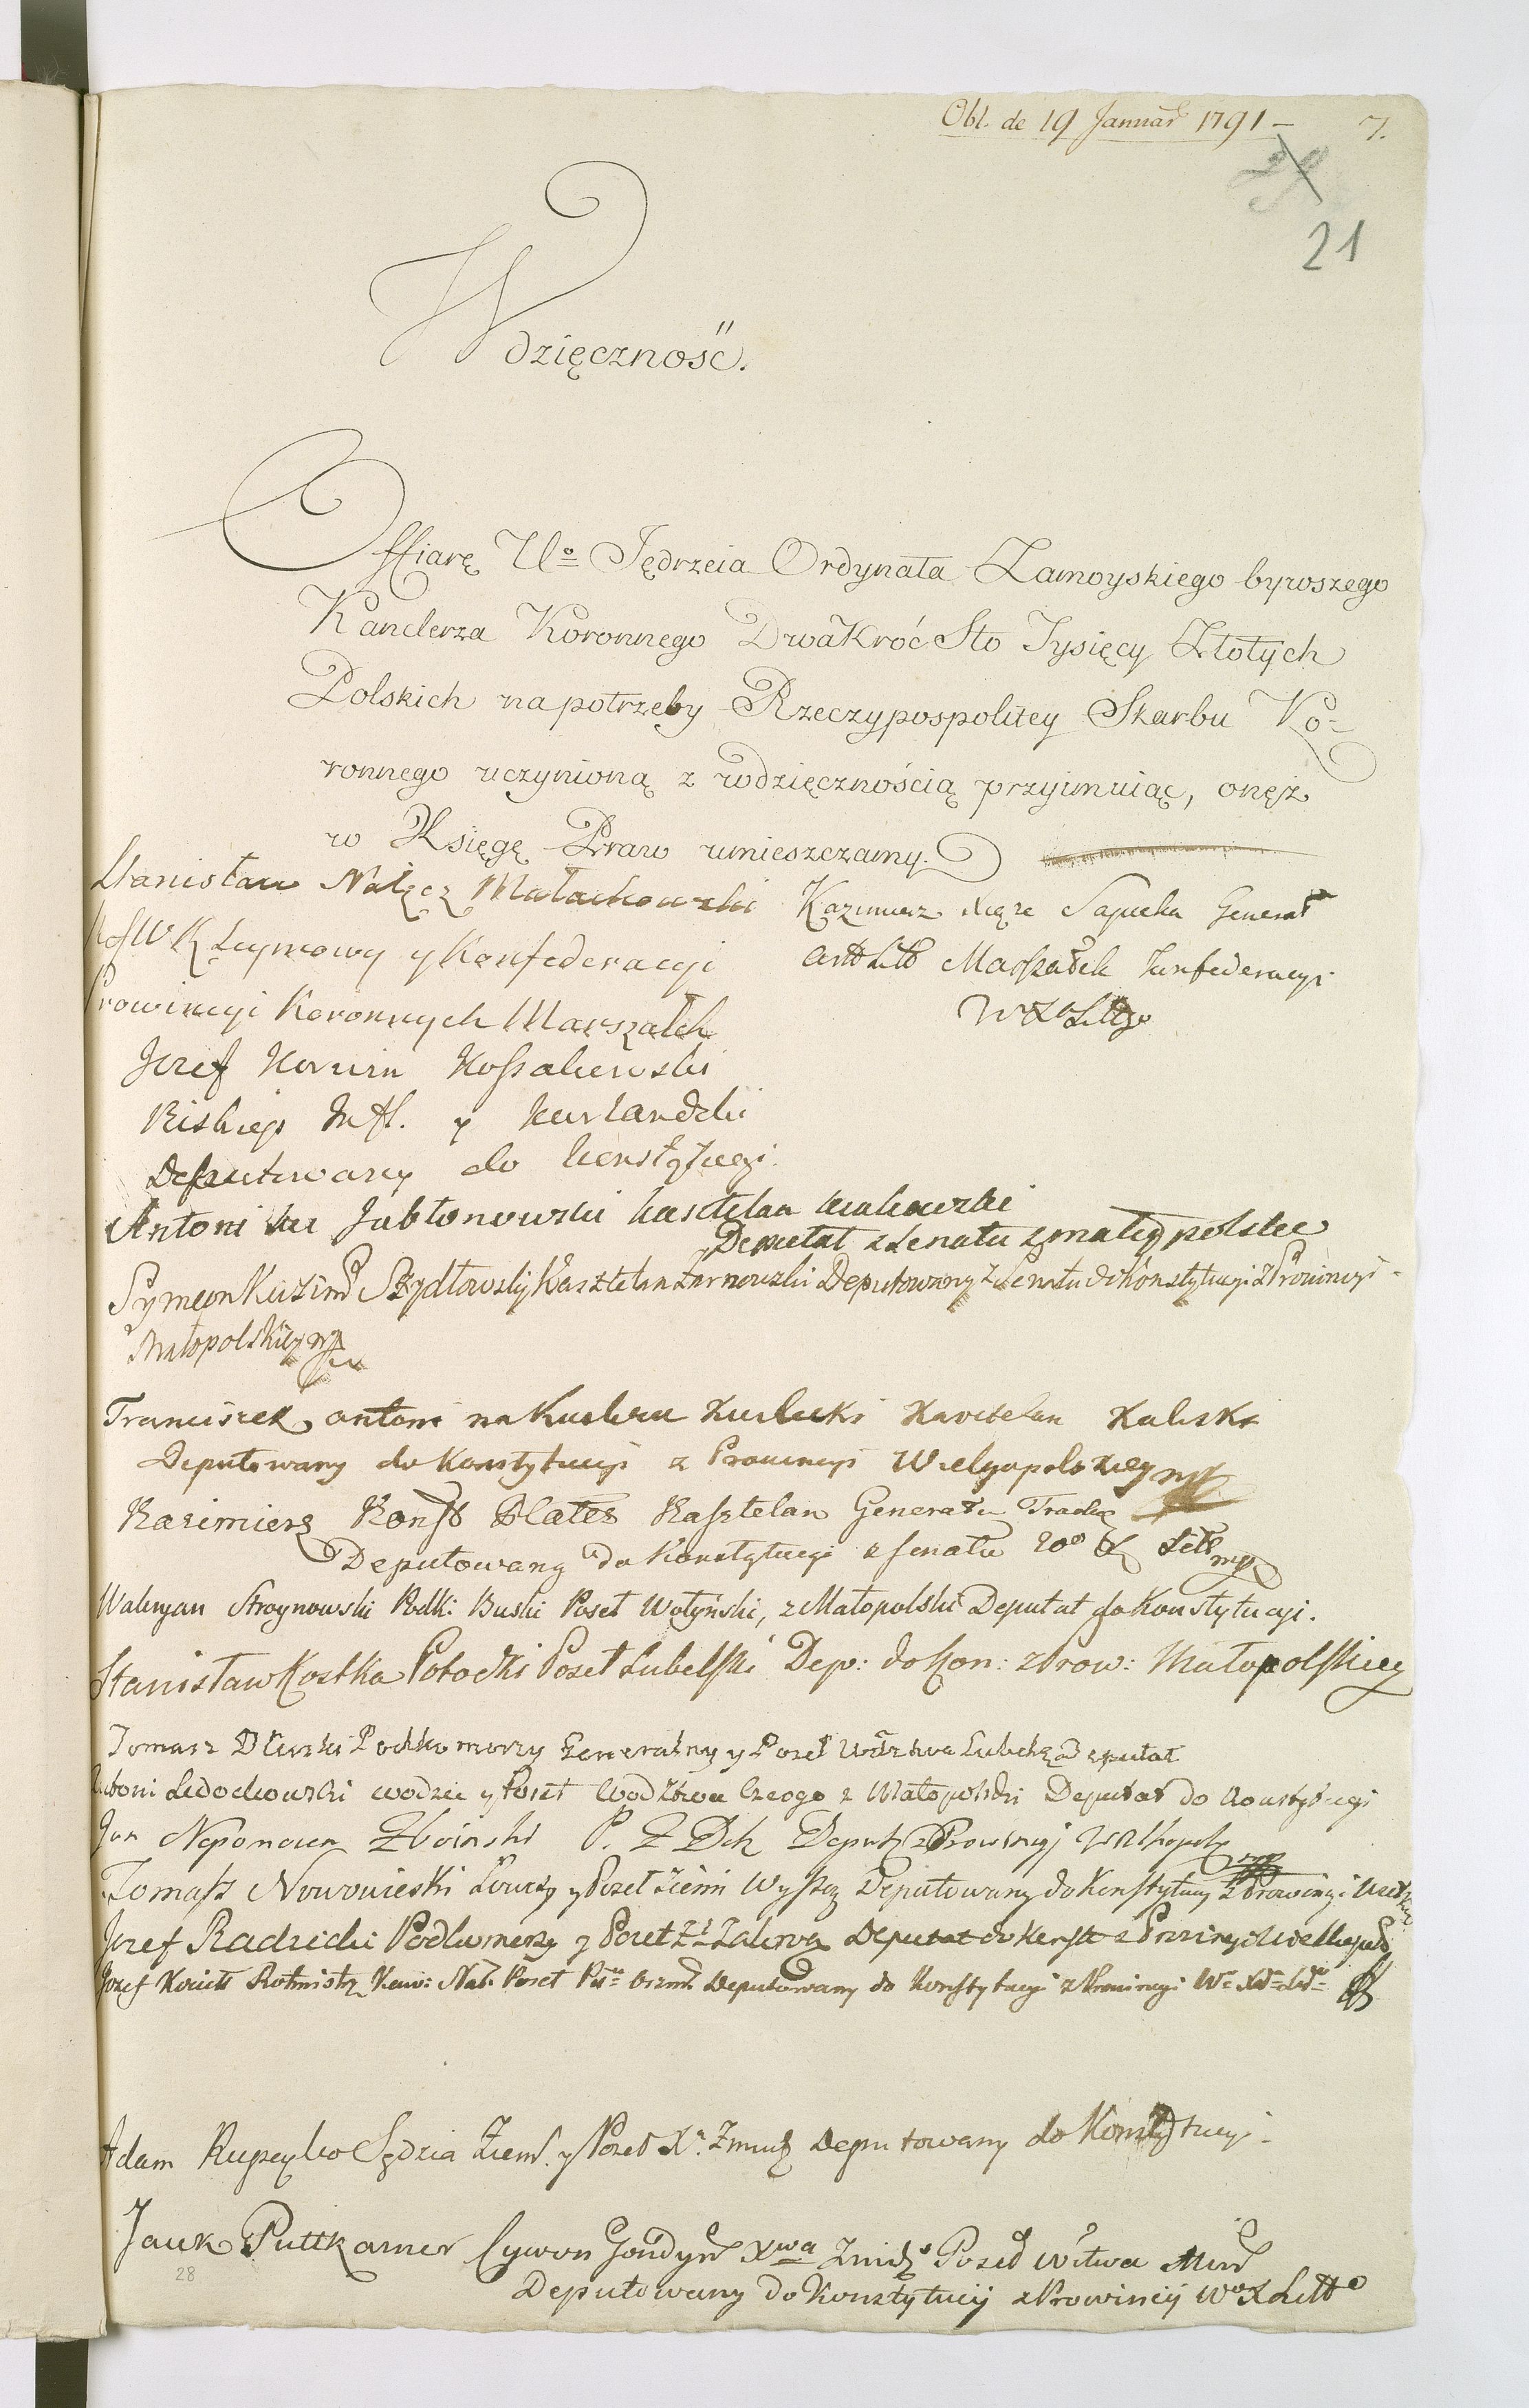 Obl. de 19 Januar 1791 –
7.
21
Wdzięczność.
Offiarę Uo Jędrzeia Ordynata Zamoyskiego bywszego
Kanclerza Koronnego Dwakroć Sto Tysięcy Złotych
Polskich na potrzeby Rzeczypospolitey Skarbu Ko-
ronnego uczynioną z wdzięcznością przyimuiąc, onęż
w Księgę Praw umieszczamy.
Stanisław Nałęcz Małachowski
Seymowy y Konfederacyi
Prowincyi Koronnych Marszałek
Kazimierz Xiąże Sapieha Generał
Artt Litt Marszałek Konfederacyi
W X Littgo
Józef Korwin Kossakowski
Biskup Infl. y Kurlandzki
Deputowany do konstytucyi.
Antoni Jabłonowski kasztelan krakowski
Deputat z Senatu z małey polski
Symeon Kazim Szydłowski Kasztelan Żarnowski Deputowany z Senatu do Konstytucyi z Prowincyi
Małopolskiey mp
Franciszek Antoni na Kwilczu Kwilecki Kasztelan Kaliski
Deputowany do Konstytucyi z Prowincyi Wielgopolskiey mp
Kazimierz Konst Plater Kasztelan Generału Trock
Deputowany do Konstytucyi z senatu Litt mp
Waleryan Stroynowski Podk: Buski Poseł Wołyński, z Małopolski Deputat do Konstytucyi.
Stanisław Kostka Potocki Poseł Lubelski Dep: do Kon: z Prow: Małopolskiey
Tomasz Dłuski Podkomorzy Generalny y Poseł Wdztwa Lubelsk Deputat
Antoni Ledochowski Poseł Wodztwa Czego z Małopolski Deputat do Konstytucyi
Jan Nepomucen Zboinski P. Z. Dob Deput z Prowincyi Wlkopol
Tomasz Nowowieski Łowczy y Poseł Ziemi Wyszog Deputowany do Konstytucy z Prowincyi
Józef Radzicki Podkomorzy y Poseł Zakro Deputat do Konst z Prowincyi Wielkopol
Józef Kociełł Rotmistrz Kaw: Nar: Poseł Ptu Oszm: Deputowany do Konstytucyi z Prowincyi Wo Xa Lito
Adam Rupeyko Sędzia Ziem. y Poseł Xa Zmudz Deputowany do Konstytucyi.
Jacek Puttkamer Cywon Gondyn Xwa Zmudz Poseł Wdtwa Min
Deputowany do Konstytucij z Prowincij Wo X Litto
28